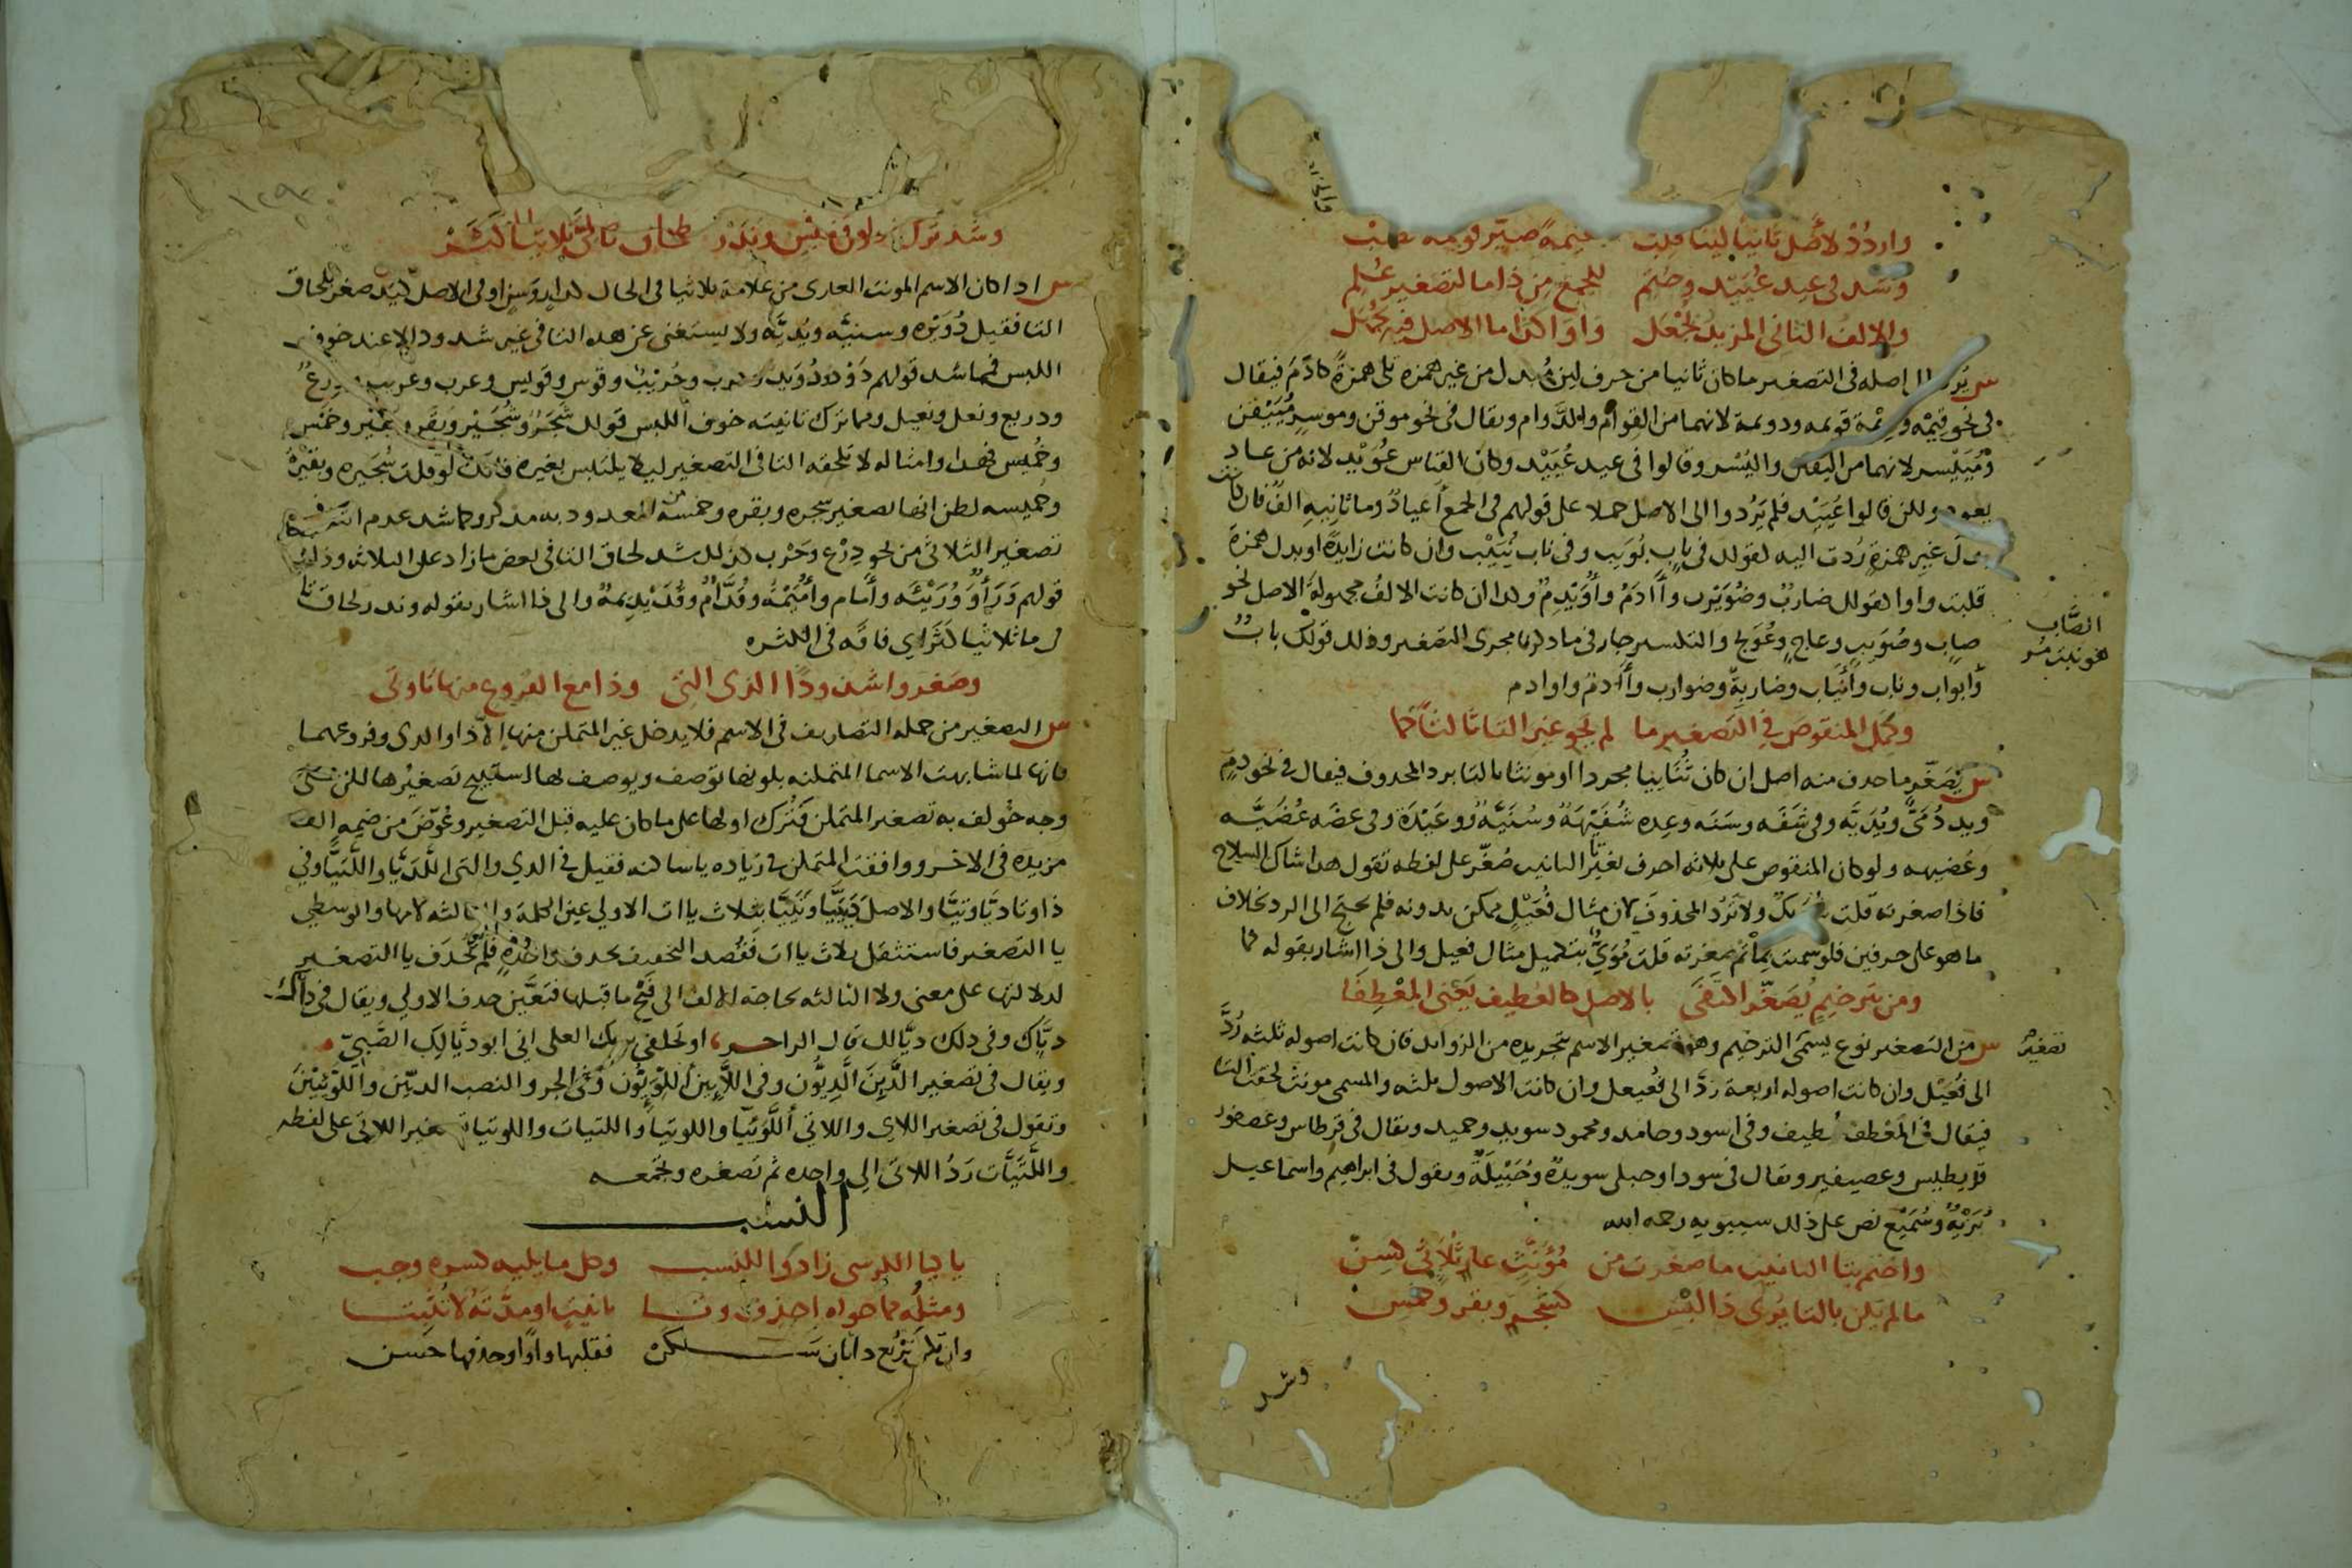 واردُدْ لأصل ثانيا لينا قلب فقيمة صيّر قويمه تصب
وشذ في عيد عُيَيْد وحتم للجمع من ذا ما لتصغير عُلم
والالف الثاني المزيد يُجْعل واوا كذا ما الاصل فيه يُجهَل
س يُرد الى اصله في التصغير ما كان ثانيا من حرف لين مُبدل من غير همزه تلي همزةً كآدَمَ فيقال
في نحو قيْمة وديْمة قويمه ودويمة لانهما من القوام والدَّوام ويقال في نحو موقن وموسرٍ مُيَيْقن
ومُيَيْسر لانهما من اليقين واليُسْر وقالوا في عيد عُيَيْد وكان القياس عُوَيْد لانه من عاد
يعود ولكن قالوا عُيَيْد فلم يَرُدوا الى الاصل حملا على قولهم في الجمع أعيادٌ وما ثانيه الفٌ فان كانت
بدلَ غيرِ همزةٍ رُدت اليه كقولك في بابٍ بُوَيب وفي ناب نُيَيْب وان كانت زايدةً او بدل همزةٍ
قلبت واوا كقولك ضاربٌ وضُوَيْرب وأاادَمُ وأُوَيْدِمُ وكذا ان كانت الالفُ مجهولةَ الاصل نحو
صابٍ وصُوَيبٍ وعاجٍ وعُوَيج والتكسير جار في ما ذكرنا مجرى التصغير وذلك قولك بابٌ
وأبواب وناب وأنياب وضاربةٌ وضوارب وأاادمُ واوادم
الصَّاب
تصغيرُ
وكمّل المنقوصَ في التصغير ما لم يَحْوِ غيرَ التا ثالثا كما
س يُصَغّر ما حذف منه اصل ان كان ثُنَاييا مجردا او مونثا بالتا برد المحذوف فيقال في نحو دمٍ
ويد دُمَيٌّ ويُدَيَّه وفي شَفَه وسَنَه وعِده شُفَيْهَةٌ وسُنَيَّةٌ ووُعَيْدَة وفي عضَه عُضَيَّه
وعُضيهه ولو كان المنقوص على ثلاثه احرف بغير تا التانيث صُغّر على لفظه تقول هذا شاك السلاح
فاذا صغرته قلت شُوَيكٌ ولا تَرُد المحذوفَ لان مثال فُعَيْلٍ ممكن بدونه فلم يحتج الى الرد بخلاف
ما هو على حرفين فلو سميت بما ثم صغرته قلت مُوَيٌّ بتكميل مثال فعيل والى ذا اشار بقوله كما
ومن بترخيمٍ يُصَغّر اكتفى بالاصل كالعُطيف يَعْني المِعْطفا
س من التصغير نوع يسمى الترخيم وهو تصغير الاسم بتجريده من الزوايد فان كانت اصوله ثلثه رُدَّ
الى فُعَيْل وان كانت اصوله اربعة ردَّ الى فُعيعل وان كانت الاصول ثلثه والمسمى مونث لحقت التا
فيقال في المعْطف عُطيف وفي اسود وحامد ومحمود سويد وحميد ويقال في قرطاس وعصفور
قُريطيس وعصيفير ويقال في سودا وحبلى سويدةٌ وحُبَيْلَةٌ ويقول في ابراهيم واسماعيل
بُرَيْهٌ وسُمَيْع نص على ذلك سيبويه رحمه الله
واختم بتا التانيث ما صغرت من مُؤَنَّثٍ عارٍ ثُلاثيّ كسِنّ
ما لم يكن بالتا يُرى ذا لَبْس كشجر وبقر وخمس
وشذ
وشذ ترك دون لبس ونَدَر لحاق تا في ما ثلاثيا كَثَر
س اذا كان الاسم المونث العاري من علامة ثلاثيا في الحال كدارٍ وسنٍ او في الاصل كيد صغر بلحاق
التا فقيل دُوَيْره وسنيَّه ويُديَّه ولا يستغنى عن هذه التا في غير شذوذ الا عند خوف
اللبس فمما شذ قولهم ذَوْد وذُوَيد وحرب وحُرَيبٌ وقوس وقويس وعرب وعريب ودرعٌ
ودريع ونعل ونعيل ومما ترك تانيثه خوف اللبس قولك شَجَرٌ وشُجَيْرٌ وبقر وبُقَيْر وخمس
وخُميس فهذا وامثاله لا تلحقه التا في التصغير ليلا يلتبس بغيره فانك لو قلت شُجَيره وبُقَيْرة
وخُميسه لظن انها تصغير شجره وبقره وخمسة المعدود به مذكر وكما شذ عدم التا في
تصغير الثلاثي من نحو دِرْع وحَرْب كذلك شذ لحاق التا في بعض ما زاد على الثلاثه وذلك
قولهم وَرَأٌ وَوُرَيْئَه وأَمام وأُمَيْمَة وقُدَّامٌ وقُدَيْدِيمةٌ والى ذا اشار بقوله وندر لحاقُ تا
في ما ثلاثيا كثَر اي فاقَه في الكثره
وصغروا شذوذا الذي التي وذا مع الفروع منها تا وتي
س التصغير من جمله التصاريف في الاسم فلا يدخل غير المتمكن منها الا ذا والذي وفروعهما
فانها لما شابهت الاسما المتمكنه بكونها توصف ويوصف بها استبيح تصغيرُها لكن على
وجه خُولف به تصغير المتمكن فَتُرك اولها على ما كان عليه قبل التصغير وعُوّضَ من ضمه الف
مزيده في الاخر ووافقت المتمكن في زياده يا ساكنه فقيل في الذي والتي اللَّذيَّا واللَّتيَّا وفي
ذا وتا ذيَّا وتيَّا والاصل ذَيَيَّا وتَيَيَّا بثلاث ياات الاولي عين الكلمة والثالثه لامها والوسطي
يا التصغير فاستثقل ثلاث ياات فقُصد التخفيف بحذف واحدةٍ فلم تُحذَف يا التصغير
لدلالتها على معنى ولا الثالثه لحاجة الالف الى فتح ما قبلها فتعَيَّن حذف الاولي ويقال في ذاك
ذيَّاك وفي ذلك ذيَّالك قال الراجز او تَحلفي بربك العلي اني ابو ذيَّالِك الصَّبيّ
ويقال في تصغير الَّذينَ الَّذيُّون وفي اللَّايين اللوَيئُون وفي الجر والنصب الذيّين واللوَيئينَ
وتقول في تصغير اللاي واللاتي اللَّوَيئا واللويتا واللتيات واللويتا تصغير اللاتي على لفظه
واللَّتيَّات رَدُّ اللاتي الي واحده ثم تصغره وتجمعه
النسب
يا كيا الكرسي زادوا للنسب وكل ما يليه كسره وجب
ومثلُه مما حواه احذف وتا تانيث او مدَّتَهُ لا تُثْبتا
وان تكن تَرْبَع ذا ثان سكن فقلبها واوًا وحذفها حَسن